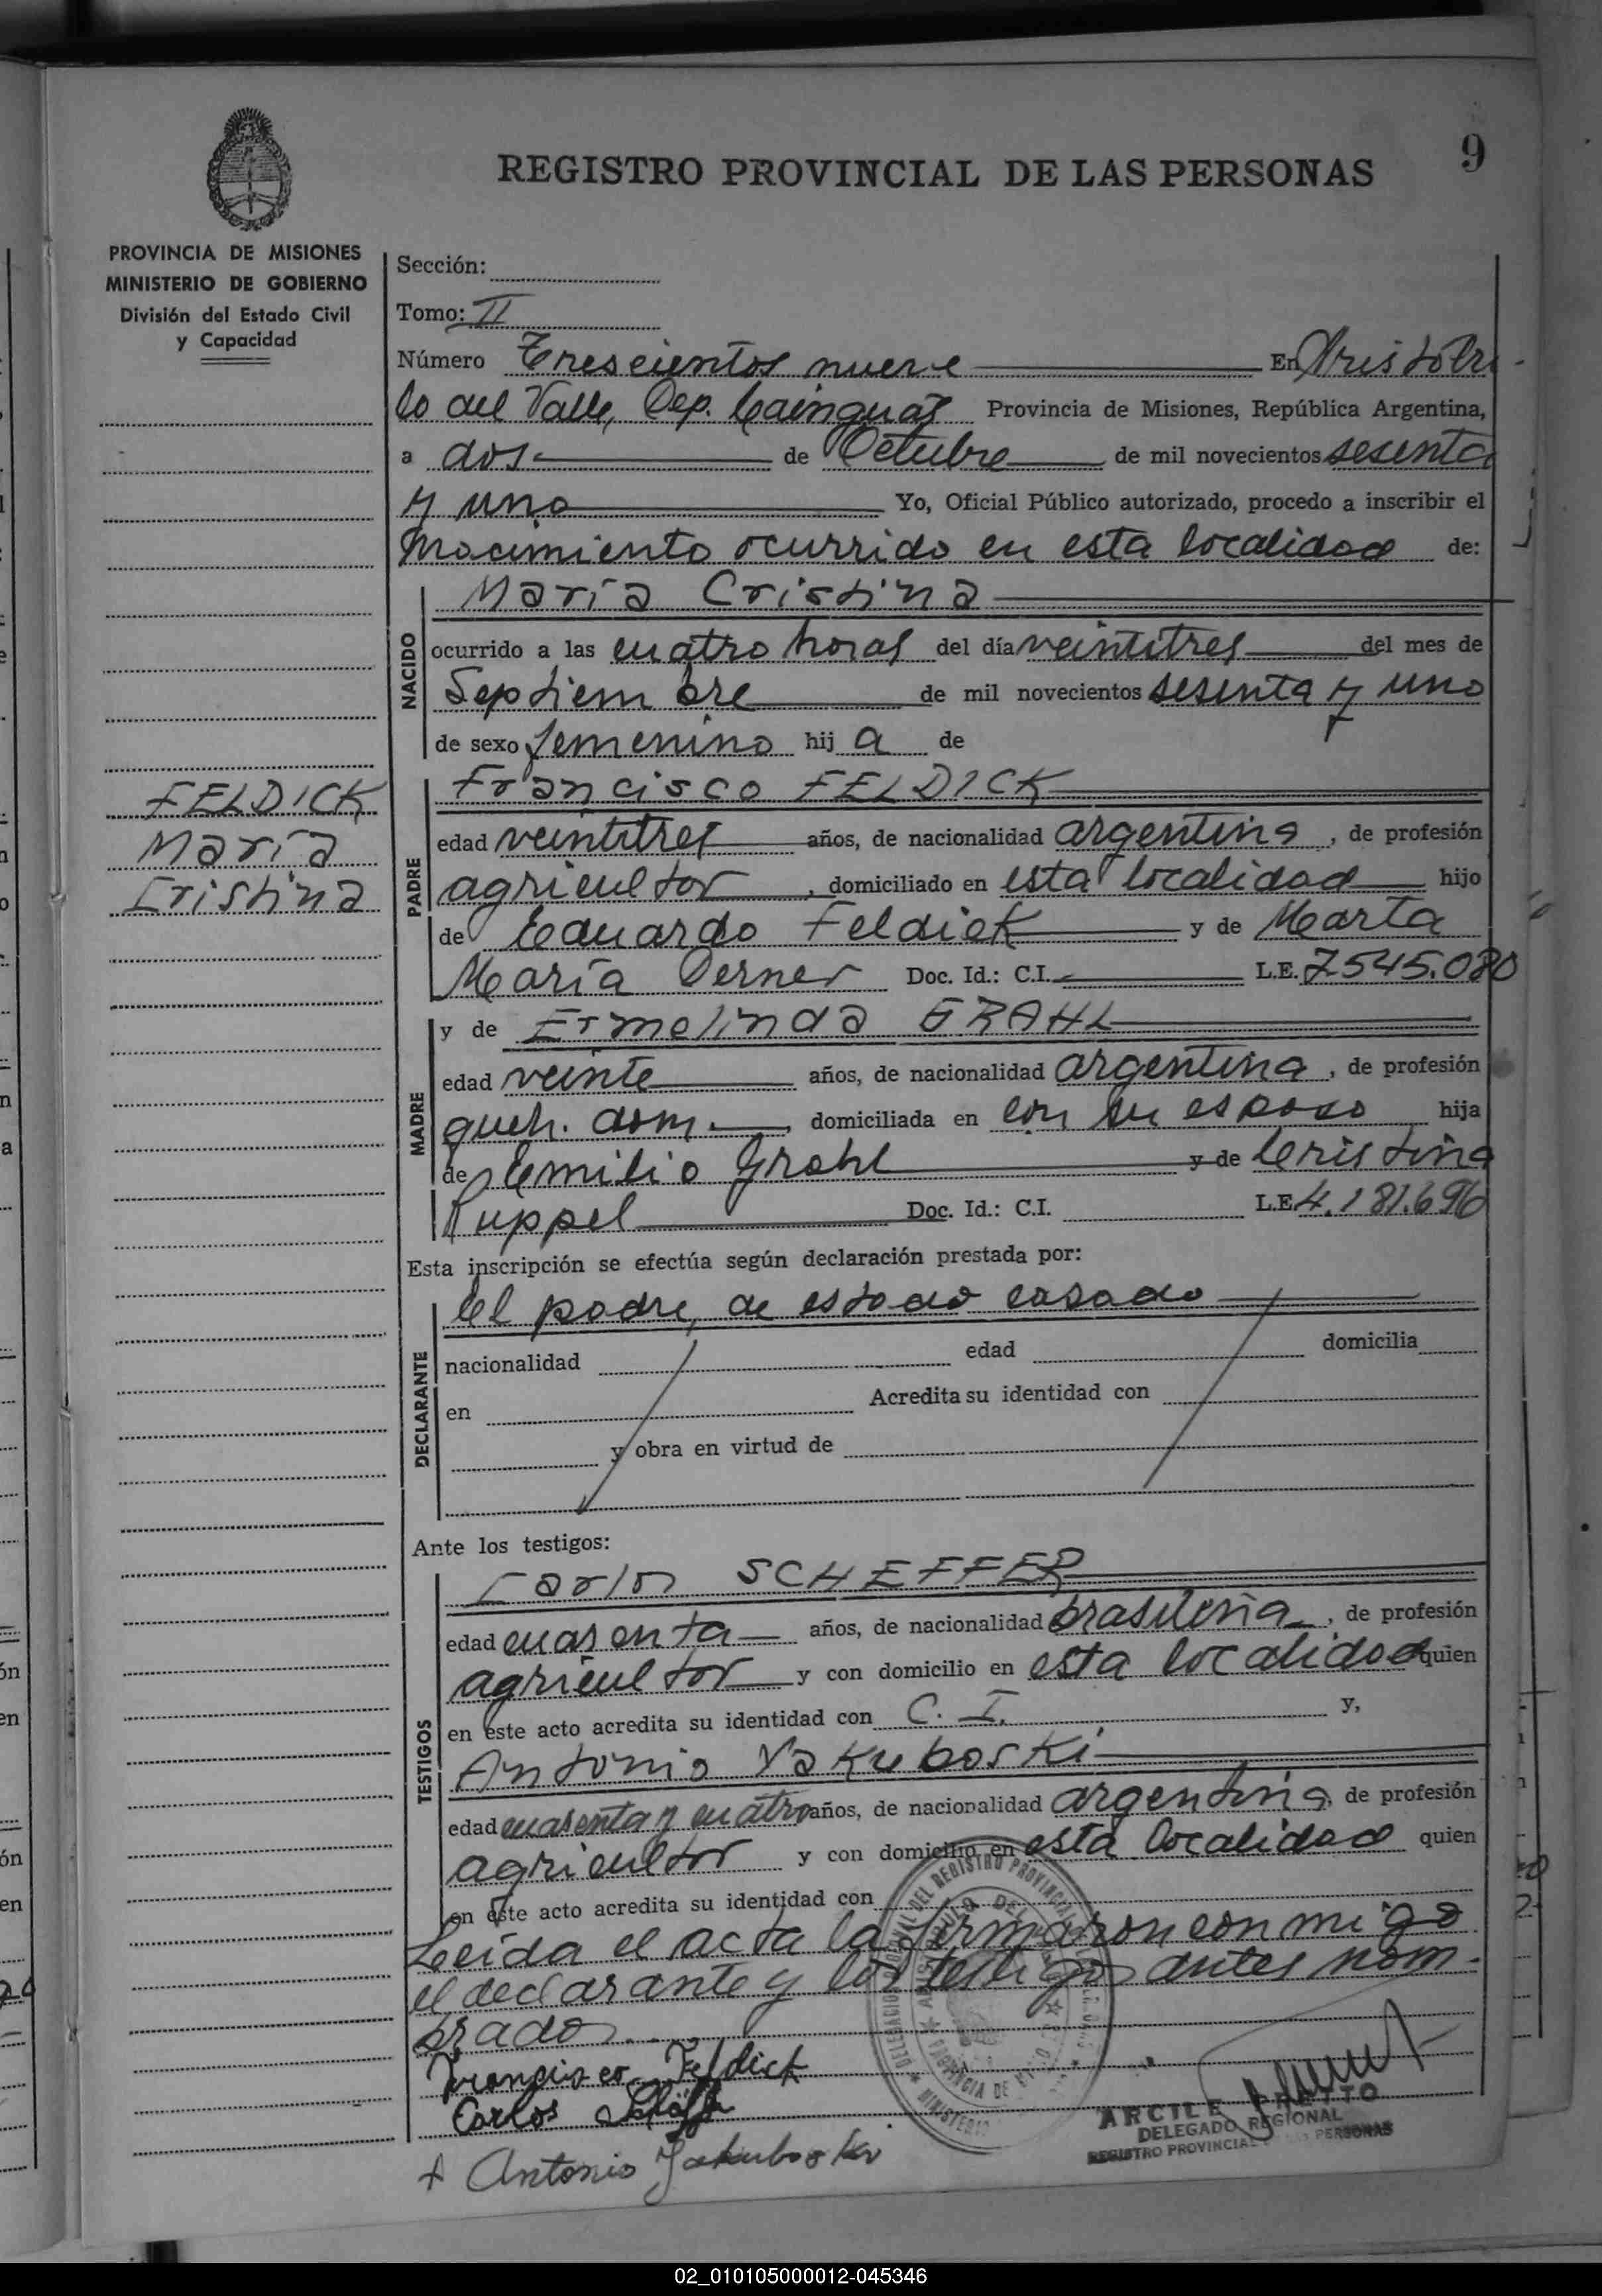 9
REGISTRO PROVINCIAL DE LAS PERSONAS
PROVINCIA DE MISIONES
MINISTERIO DE GOBIERNO
División del Estado Civil
y Capacidad
Sección:
Tomo: II
Número Trescientos nueve En Aristobu
lo del Valle, Dep. Cainguás Provincia de Misiones, República Argentina,
a dos de Octubre de mil novecientos sesenta
y uno Yo, Oficial Público autorizado, procedo a inscribir el
nacimiento ocurrido en esta localidad de:
NACIDO
María Cristina
ocurrido a las cuatro horas del día veintitres del mes de
Septiembre de mil novecientos sesenta y uno
de sexo femenino hij a de
FELDICK
María
Cristina
PADRE
Francisco FELDICK
edad veintitres años, de nacionalidad argentina, de profesión
agricultor, domiciliado en esta localidad hijo
de Eduardo Feldick y de Marta
María Derner Doc. Id.: C.I. L.E. 7545.080
MADRE
y de Ermelinda GRAHL
edad veinte años, de nacionalidad argentina, de profesión
queh. dom. domiciliada en con su esposo hija
de Emilio Grahl y de Cristina
Ruppel Doc. Id.: C.I. L.E 4.181.696
Esta inscripción se efectúa según declaración prestada por:
DECLARANTE
el padre, de estado casado
nacionalidad edad domicilia
en Acredita su identidad con
y obra en virtud de
Ante los testigos:
TESTIGOS
Carlos SCHEFFER
edad cuarenta años, de nacionalidad brasileña, de profesión
agricultor y con domicilio en esta localidad quien
en este acto acredita su identidad con C. I. y,
Antonio Yakuboski
edad cuarenta y cuatro años, de nacionalidad argentina, de profesión
agricultor y con domicilio en esta localidad quien
en este acto acredita su identidad con
Leída el acta la firmaron conmigo
el declarante y los testigos antes nom-
brados.
Francisco Feldick
Carlos
Antonio Jakuboski
ARCILE PRETTO
DELEGADO REGIONAL
REGISTRO PROVINCIAL PERSONAS
02_010105000012-045346